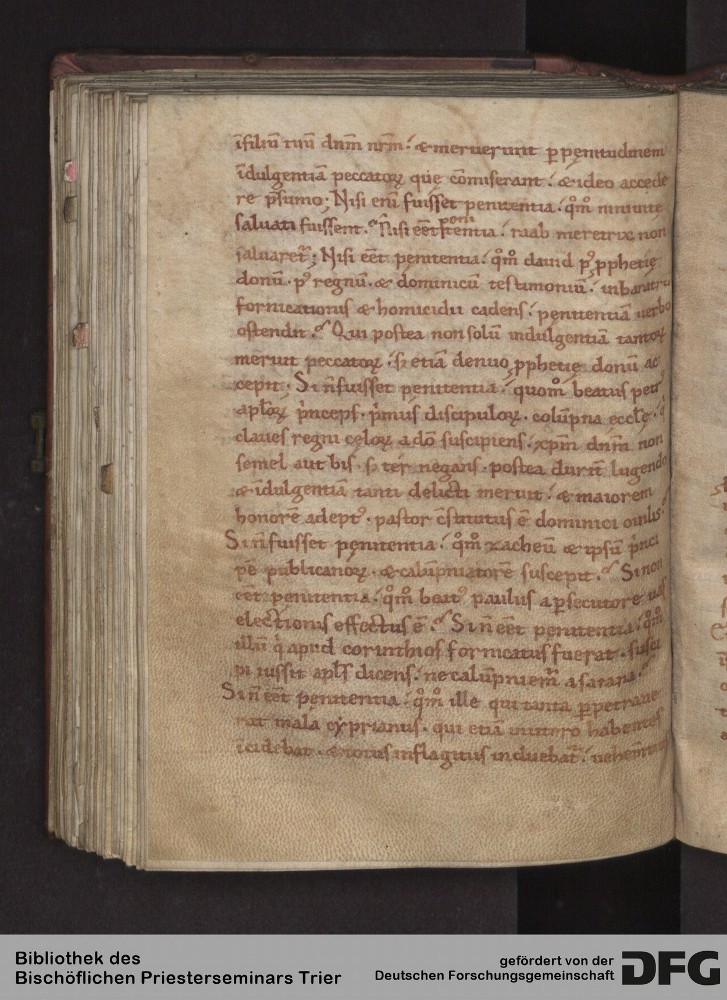 īfiliū tuū dnm̄ nrm̄. & meruerunt ꝑ penitudinem
īdulgentiā peccatoꝝ quę cōmiserant. & ideo accede
re p̄sumo; Nisi enī fuisset penitentia. qm̄o niniuite
saluati fuissent. Nisi eēt penitentia. raab meretrix non
saluaret̄; Nisi eēt penitentia. qm̄o dauid pꝰ ꝓphetię
donū. pꝰ regnū. & dominicū testimoniū. inbaratru
fornicationis & homicidii cadens. penitentiā uerbo
ostendit. Qui postea non solū indulgentiā tantoꝝ
meruit peccatoꝝ. sꝫ etiā denuo ꝓphetię donū ac
cepit. Si n̄ fuisset penitentia. quomo beatus petrꝰ
apl̄oꝝ p̄nceps. p̄mus discipuloꝝ. colūpna eccl̄ę. q
claues regni cęloꝝ a dō suscipiens. xp̄m dnm̄ non
semel aut bis. sꝫ ter negans. postea dum lugendo
& īdulgentiā tanti delicti meruit. & maiorem
honorē adeptꝰ. pastor c̄stitutus ē dominici ouilis.
Si n̄ fuisset penitentia. qm̄o zacheū & ipsū p̄nci
pē publicanoꝝ. & calūpniatorē suscepit. Si non
eēt penitentia. qm̄o beatꝰ paulus a ꝑsecutore uas
electionis effectus ē. Si n̄ eēt penitentia. qm̄o
illū q apud corinthios fornicatus fuerat. susci
pi iussit apl̄s dicens. ne calūpniem̄ a satana.
Si n̄ eēt penitentia. qm̄o ille qui tanta ꝑpetraue
rat mala cyprianus. qui etiā in utero habentes
īcidebat. & totus inflagitiis induebat̄.
Bibliothek des
Bischöflichen Priesterseminars Trier
gefördert von der
Deutschen Forschungsgemeinschaft
DFG